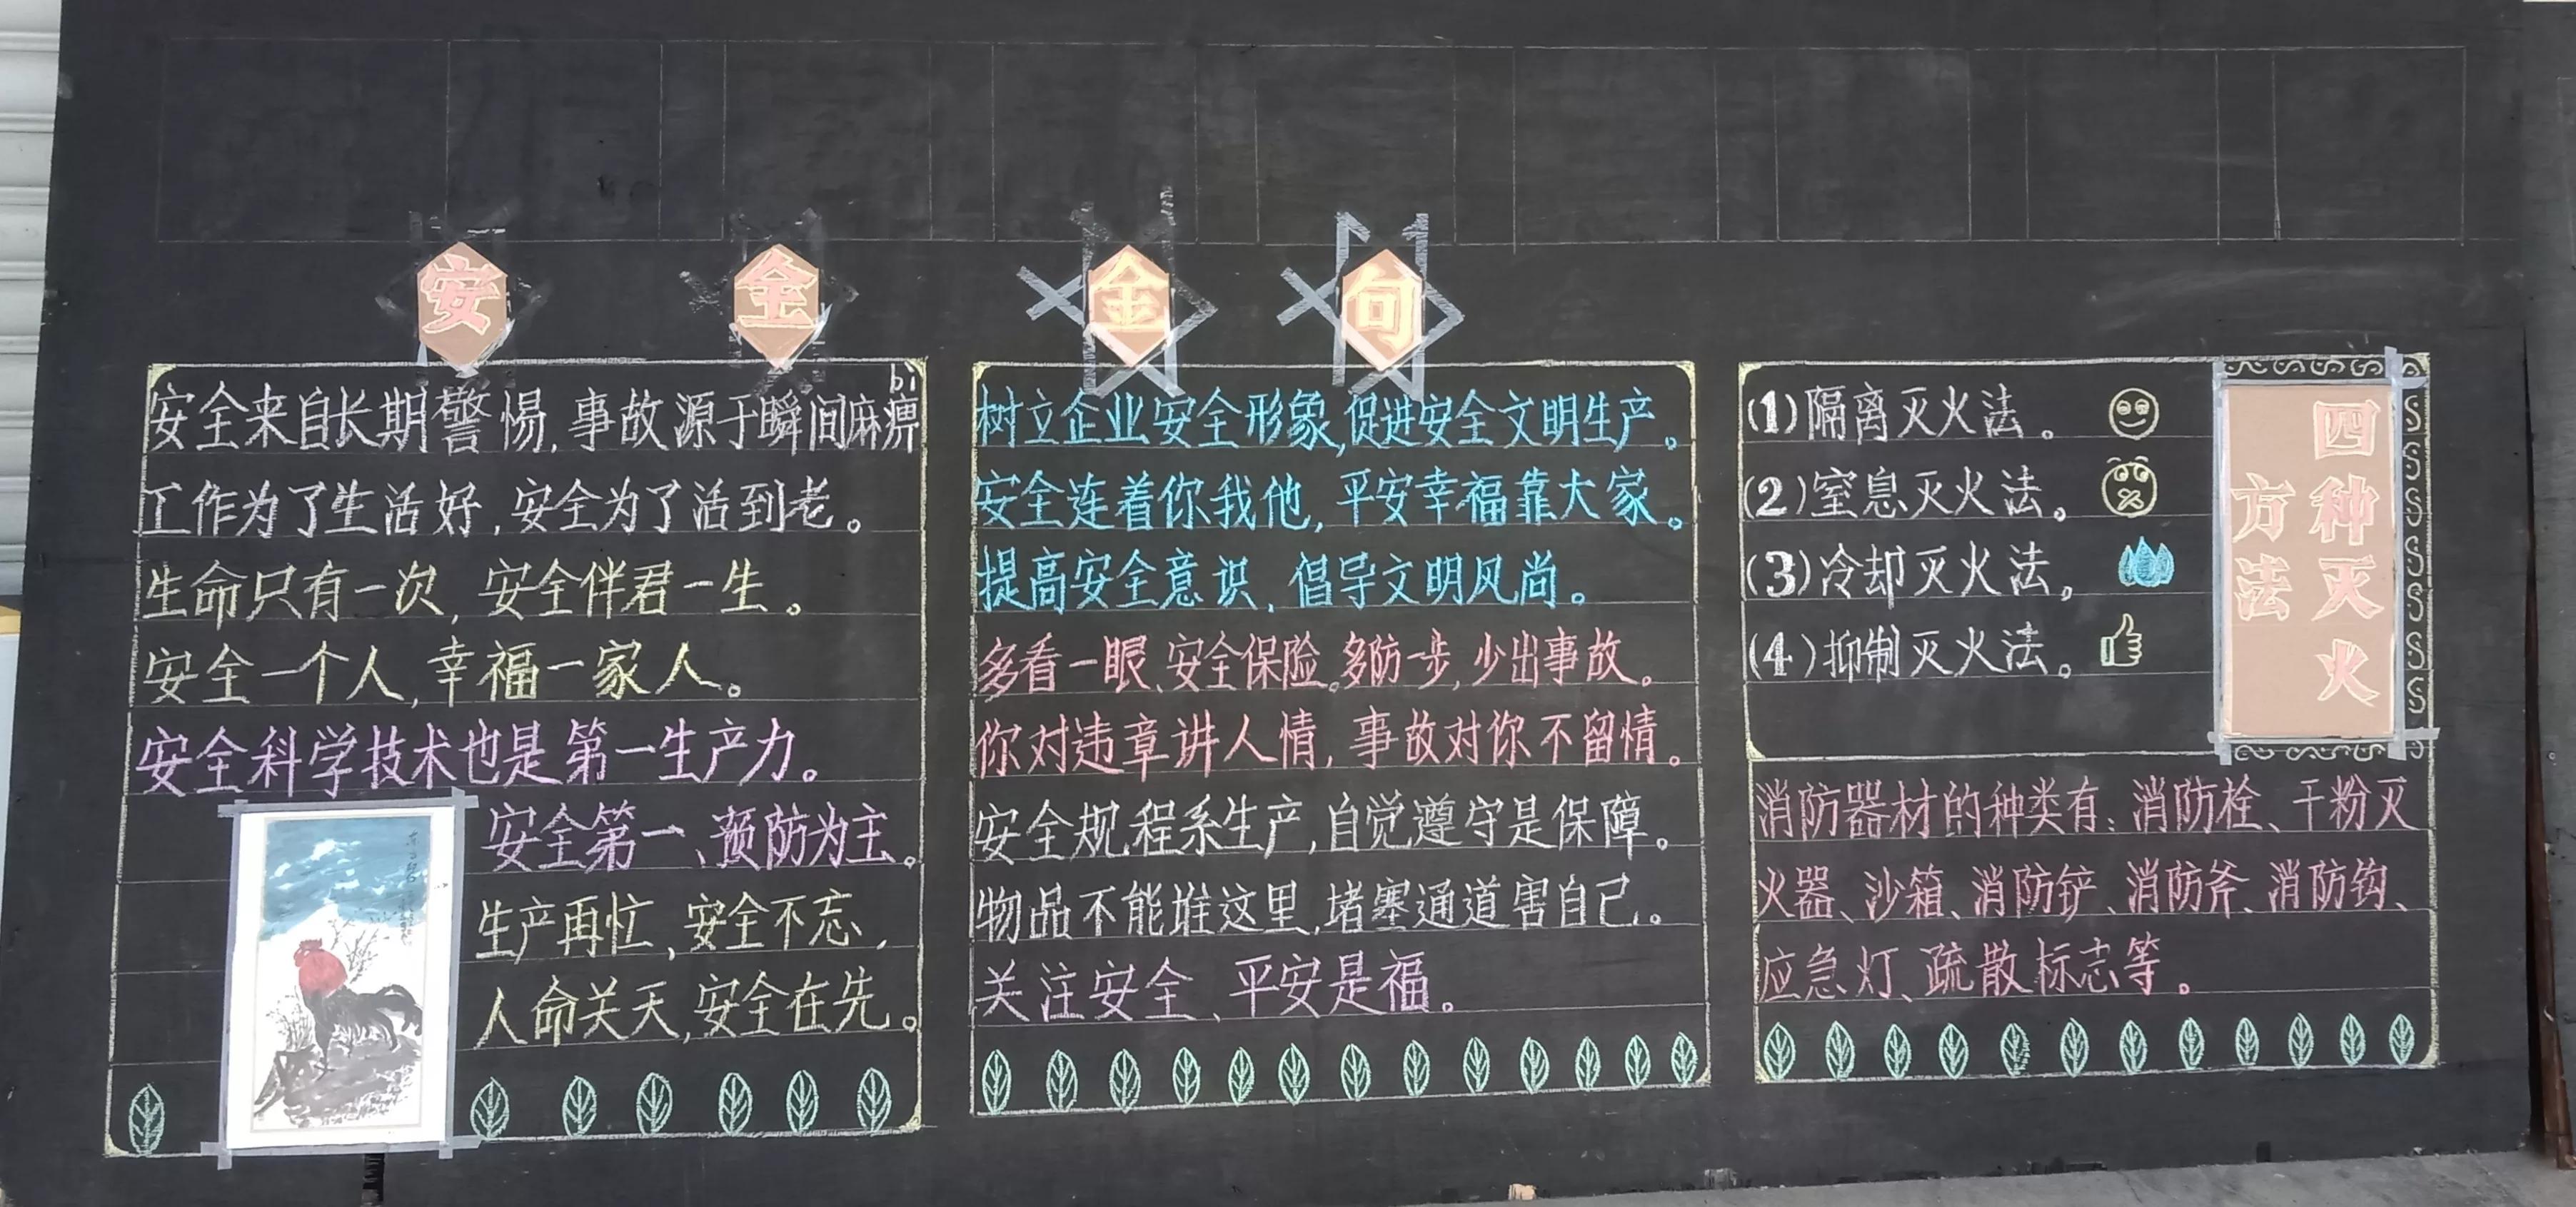 安全金句
bì
安全来自长期警惕,事故源于瞬间麻痹
工作为了生活好,安全为了活到老。
生命只有一次,安全伴君一生。
安全一个人,幸福一家人。
安全科学技术也是第一生产力。
安全第一、预防为主。
生产再忙,安全不忘,
人命关天,安全在先。
树立企业安全形象,促进安全文明生产。
安全连着你我他,平安幸福靠大家。
提高安全意识,倡导文明风尚。
多看一眼、安全保险。多防一步,少出事故。
你对违章讲人情,事故对你不留情。
安全规程系生产,自觉遵守是保障。
物品不能堆这里,堵塞通道害自己。
关注安全、平安是福。
四种灭火
方法
(1)隔离灭火法。
(2)窒息灭火法。
(3)冷却灭火法。
(4)抑制灭火法。
消防器材的种类有:消防栓、干粉灭
火器、沙箱、消防铲、消防斧、消防钩、
应急灯、疏散标志等。